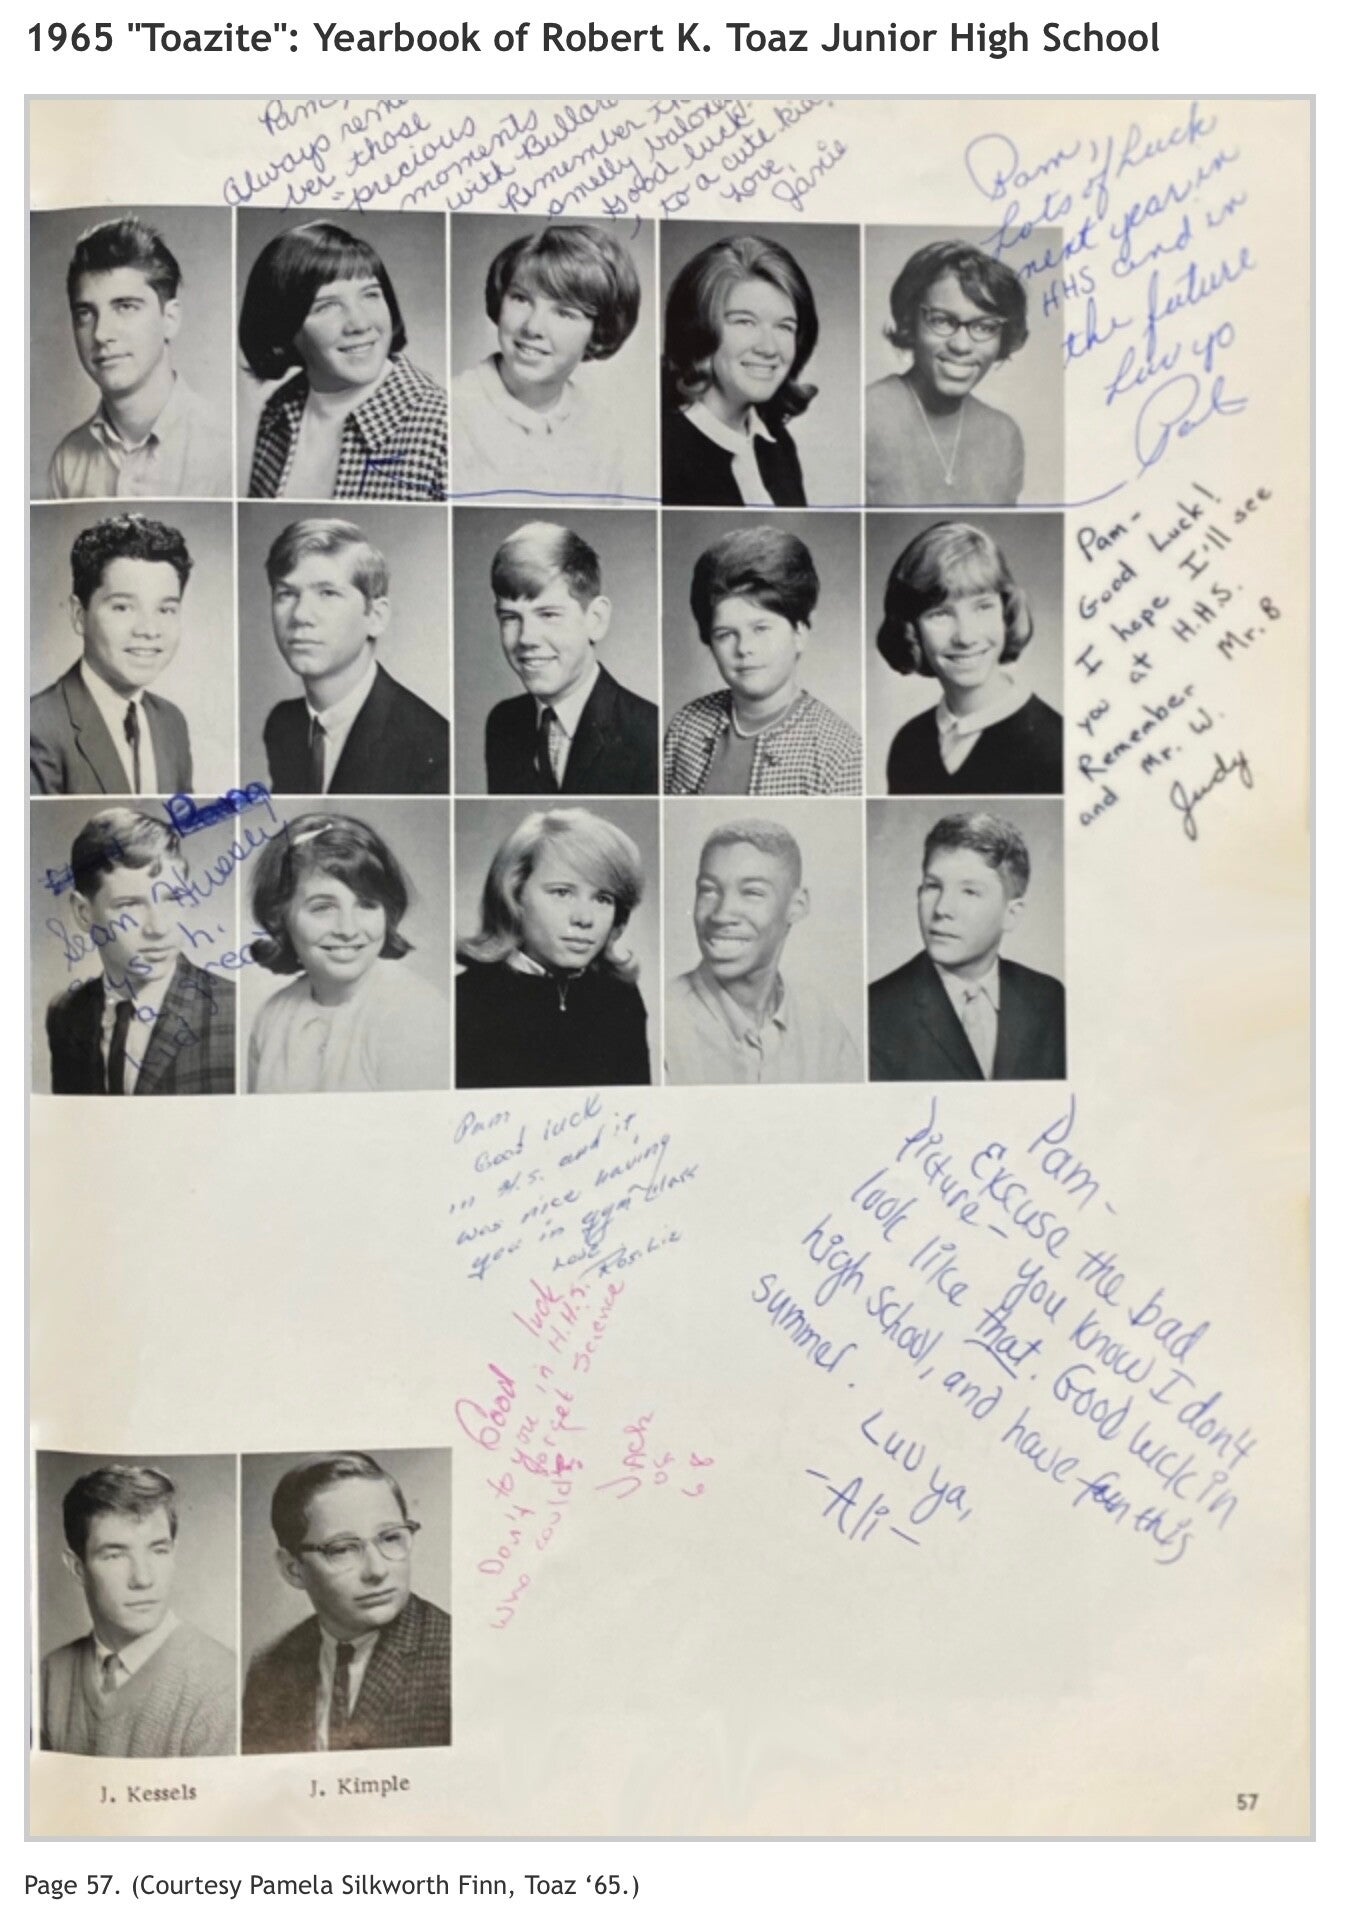 1965 "Toazite": Yearbook of Robert K. Toaz Junior High School
Pam,
Always remem
ber those
"precious
moments
with Bullard
Remember th
smelly baloney.
Good luck
to a cute kid,
Love,
Janie
Pam,
Lots of Luck
next year in
HHS and in
the future
Luv ya
Pat
Pam-
Good Luck!
I hope I'll see
you at H.H.S.
Remember Mr. B
and Mr. W.
Judy
Sean Hussey
says h.
a great
kid
Pam
Good luck
in H.S. and it
was nice having
you in gym class
Love
Pam-
Excuse the bad
picture- you know I don't
look like that. Good luck in
high school, and have fun this
summer.
Luv ya,
-Ali-
Good luck
to you in H.H.S.
Don't forget Science
who could
Jack
68
J. Kessels
J. Kimple
57
Page 57. (Courtesy Pamela Silkworth Finn, Toaz ‘65.)